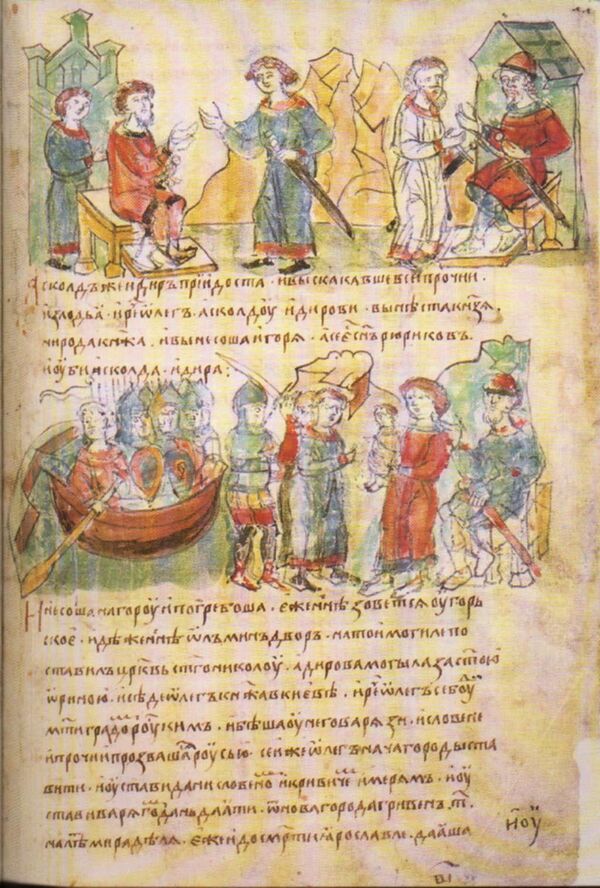 Асколдъ же и дир̑ъ приидоста · и выскакавше вси прочии
излодьӕ · и реч̑ ѡлегъ асколдоу и дирови · вы нѣста кнѧзѧ
ни рода кнѧжа · и вынесоша игорѧ · а се ес̑ сн҃ъ рюриковъ
и оубиша асколда и дира :
И несоша на гороу и погребоша · еже нн҃ѣ зоветсѧ оугорь
ское · идѣже нн҃ѣ ѡлъминъ дворъ · на тои могиле по
ставилъ црк҃вь ст҃го николоу · а дирова могыла за ст҃ою
ѡриною · и сѣде ѡлегъ кнѧжа в киевѣ · и реч̑ ѡлегъ се боуд̑
мт҃и градом̑ роускимъ · и бѣша оу него варѧзи · и словене
и прочи прозвашасѧ роусью · сеи же ѡлегъ нача городы ста
вити · и оустави дани словеном̑ и кривиче м и мерѧм · и оу
стави варѧгом̑ дань даӕти · ѿ новагорода гривенъ · т҃ ·
на лѣт̑ мира дѣлѧ · еже и до смр҃ти ӕрославле · даӕша